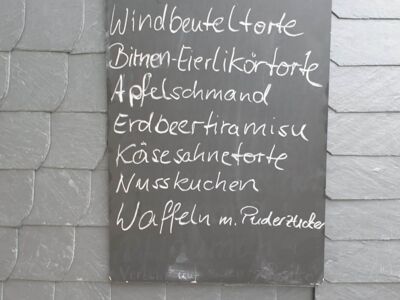 Windbeuteltorte
Birnen-Eierlikörtorte
Apfelschmand
Erdbeertiramisu
Käsesahnetorte
Nusskuchen
Waffeln m. Puderzucker